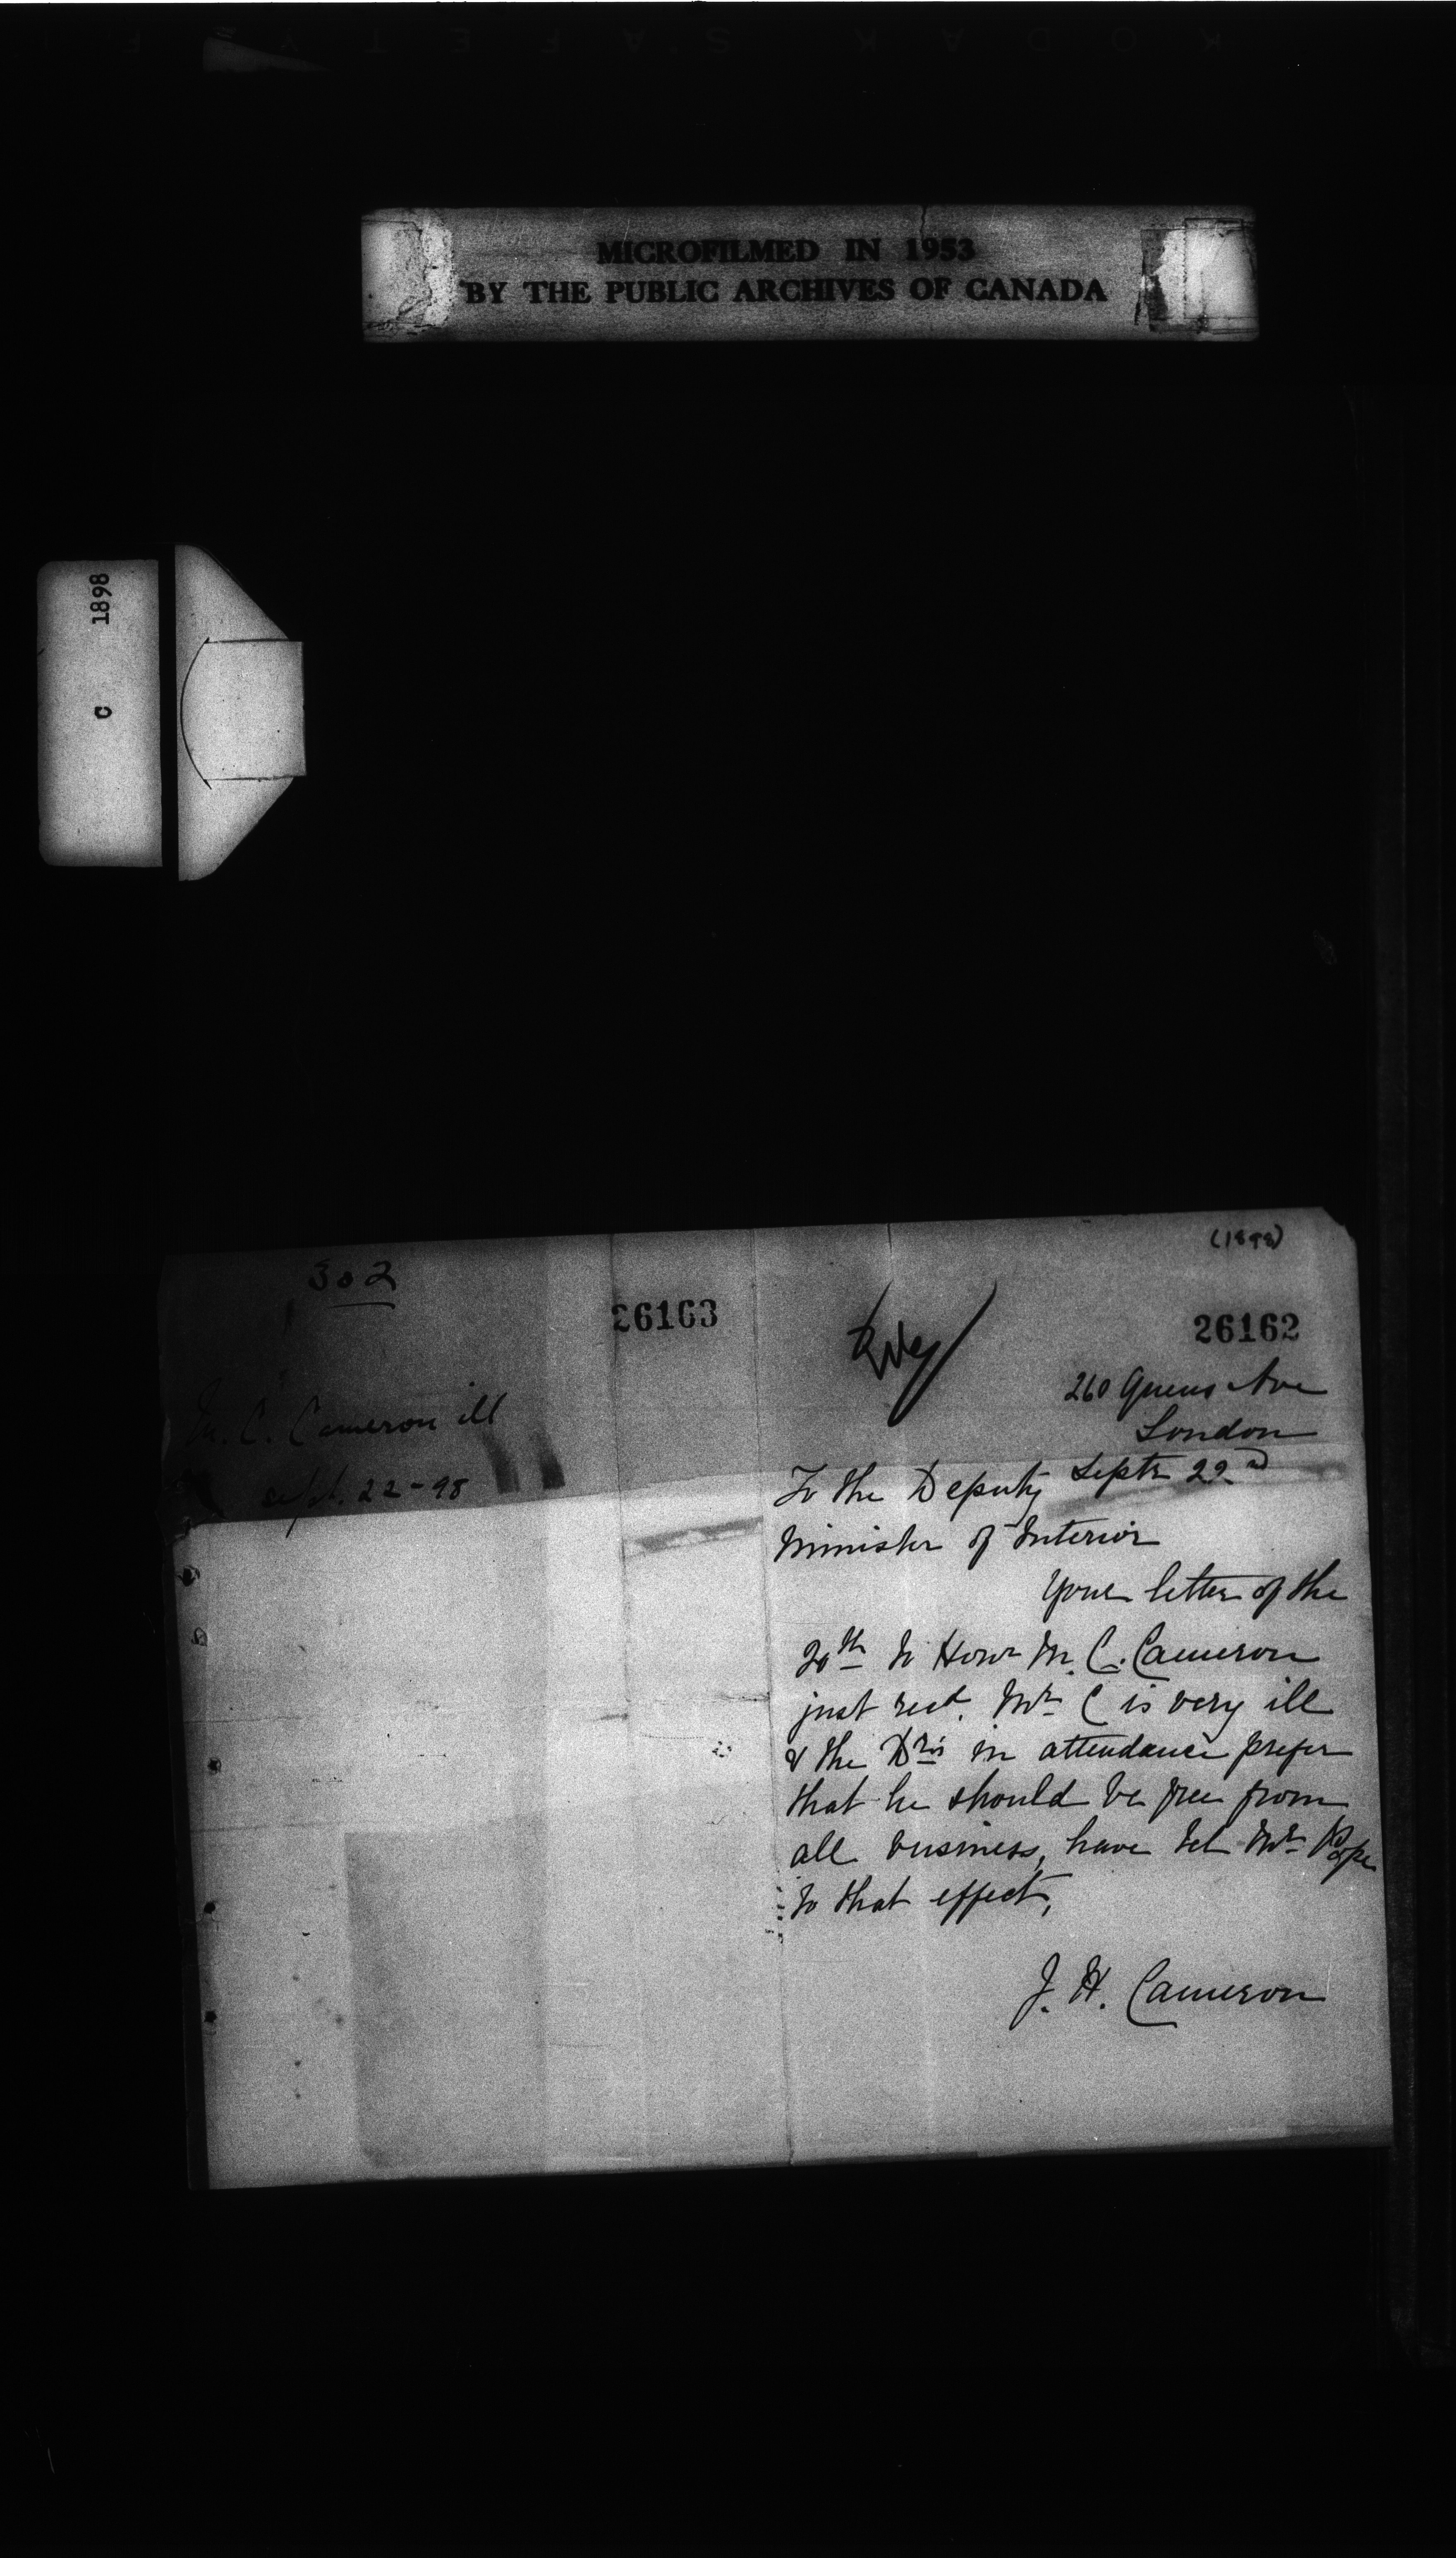 KODAK SAFETY F
MICROFILMED IN 1953
BY THE PUBLIC ARCHIVES OF CANADA
C 1898
302
26163
M. C. Cameron ill
Sept. 22-98
(1898)
26162
260 Queens Ave
London
Septr 22nd
To the Deputy
Minister of Interior
Your letter of the
20th to Honr M. C. Cameron
just recd. Mr C is very ill
& the Drs in attendance prefer
that he should be free from
all business, have tel Mr Pope
to that effect,
J. H. Cameron